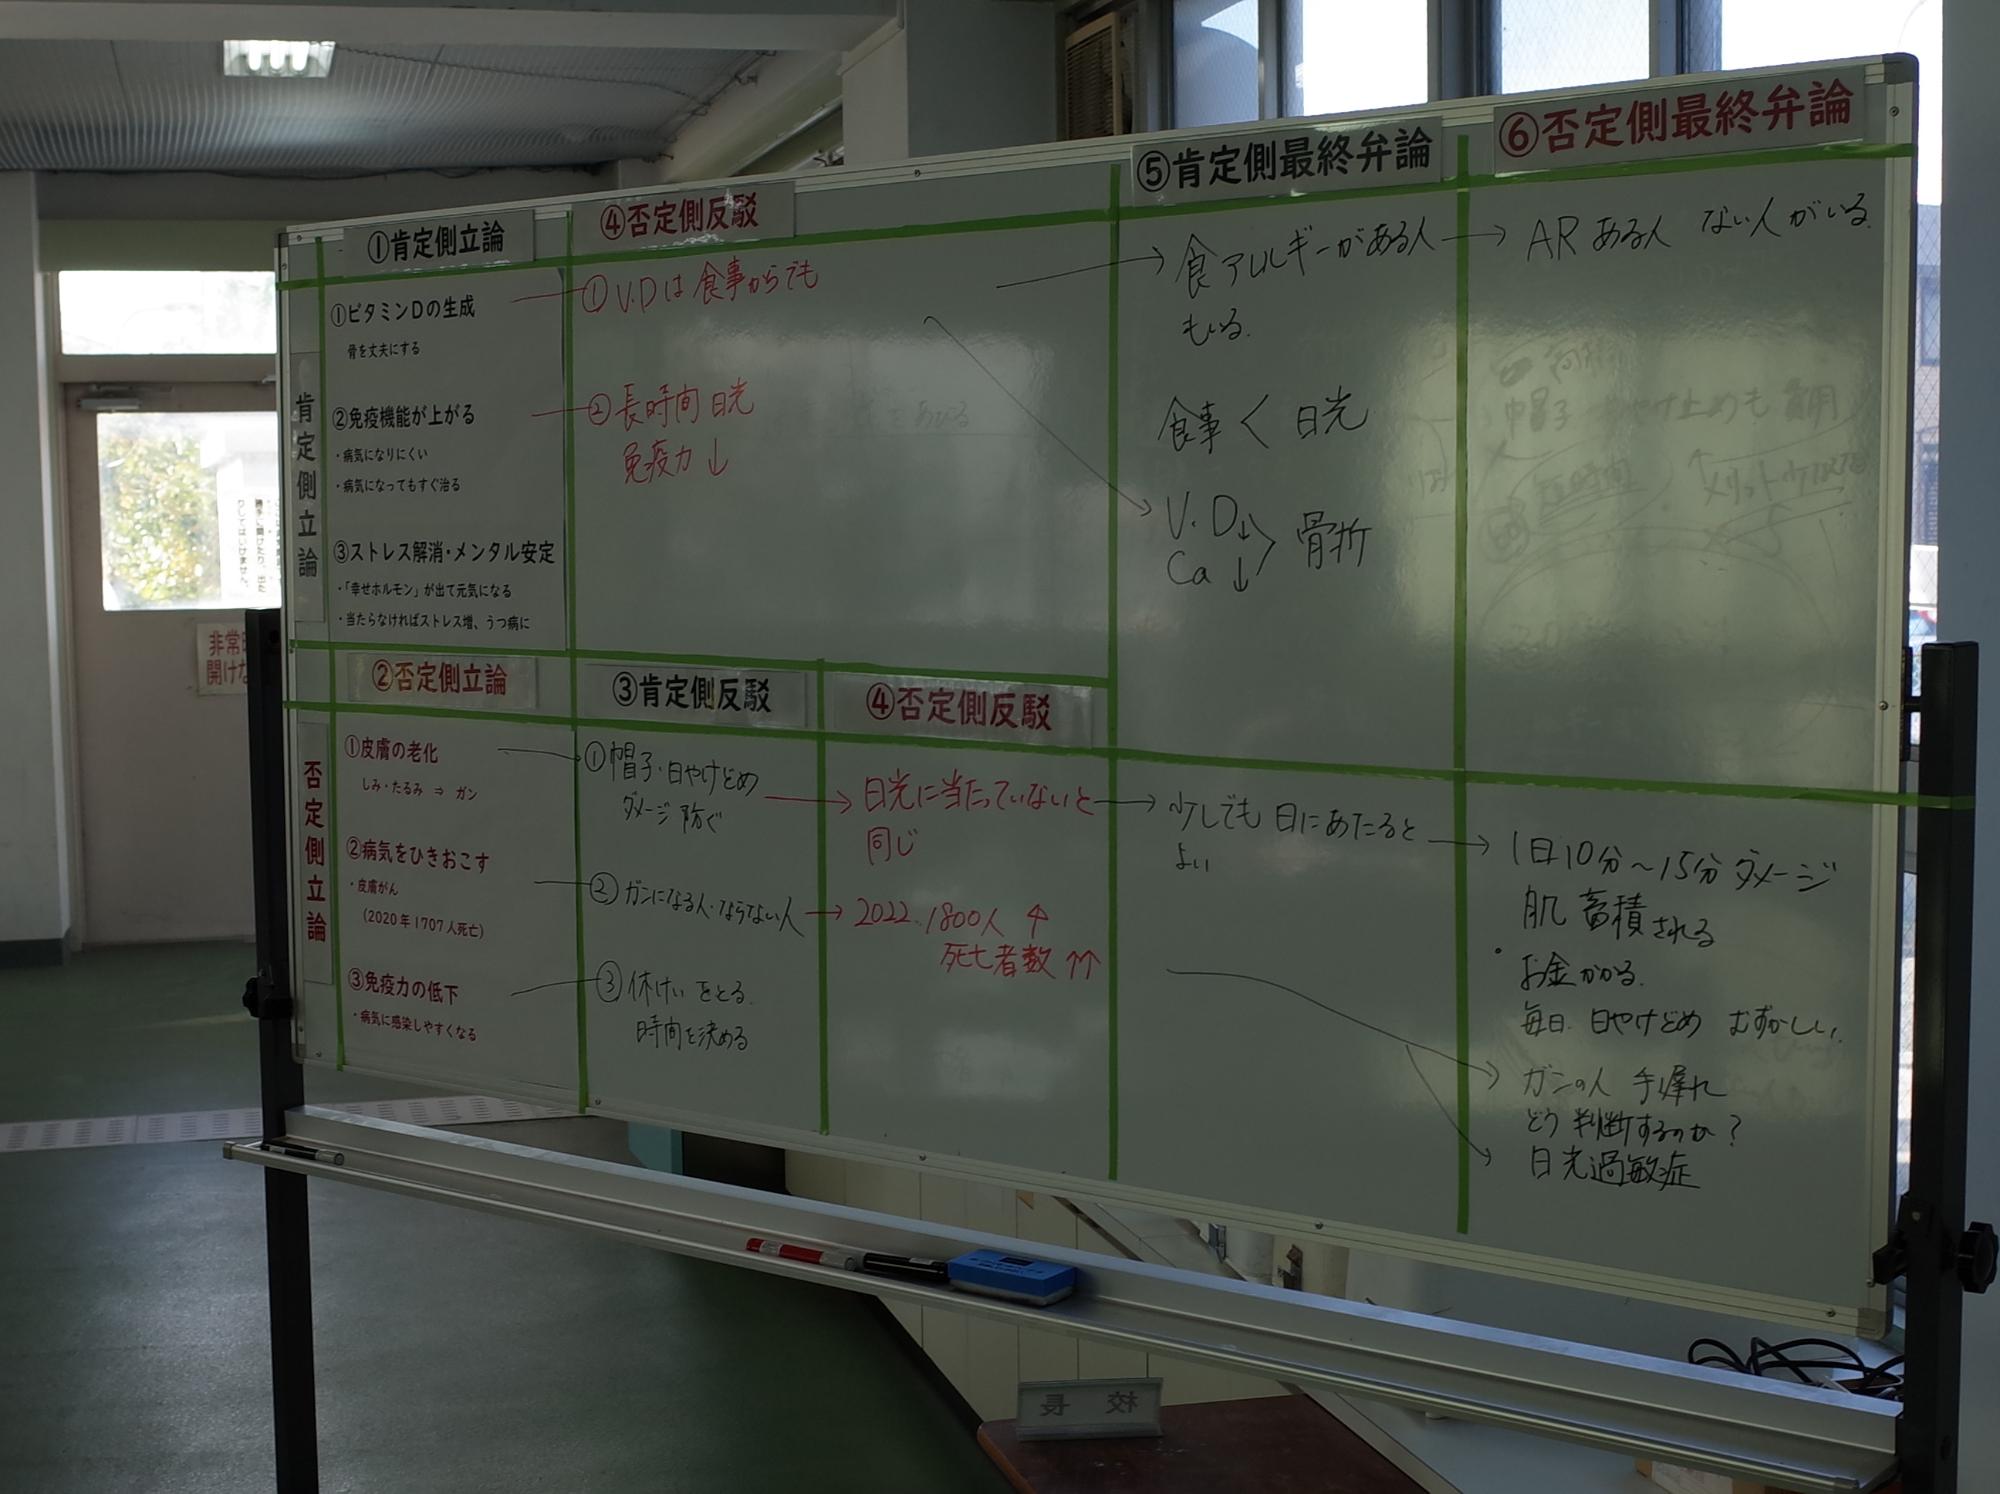 ①肯定側立論
④否定側反駁
⑤肯定側最終弁論
⑥否定側最終弁論
肯定側立論
①ビタミンDの生成
骨を丈夫にする
②免疫機能が上がる
・病気になりにくい
・病気になってもすぐ治る
③ストレス解消・メンタル安定
・「幸せホルモン」が出て元気になる
・当たらなければストレス増、うつ病に
①V.Dは食事からでも
②長時間日光
免疫力↓
食アレルギーがある人
もいる.
食事<日光
V.D↓
Ca↓
骨折
ARある人 ない人がいる.
②否定側立論
③肯定側反駁
④否定側反駁
否定側立論
①皮膚の老化
しみ・たるみ ⇒ ガン
②病気をひきおこす
・皮膚がん
(2020年1707人死亡)
③免疫力の低下
・病気に感染しやすくなる
①帽子・日やけどめ
ダメージ防ぐ
②ガンになる人・ならない人
③休けいをとる.
時間を決める
日光に当たっていないと
同じ
2022.1800人↑
死亡者数↑↑
少しでも日にあたると
よい
1日10分～15分ダメージ
肌 蓄積される
・お金かかる.
毎日.日やけどめ むずかしい.
ガンの人 手遅れ
どう判断するのか?
日光過敏症
非常
開け
校長